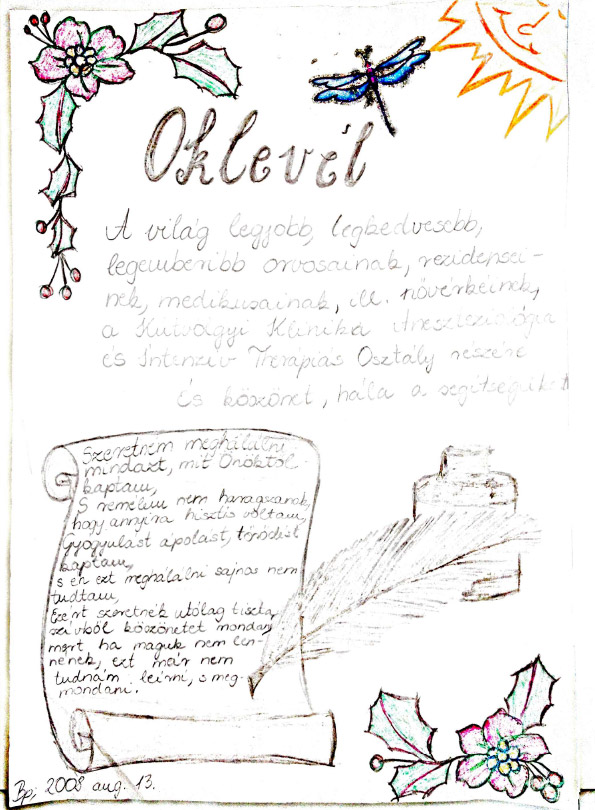 Oklevél
A világ legjobb, legkedvesebb,
legemberibb orvosainak, rezidensei-
nek, medikusainak, ill. nővérkéinek,
a Kútvölgyi Klinika Aneszteziológia
és Intenzív Therápiás Osztály részére
És köszönet, hála a segítségükért
Szeretném meghálálni
mindazt, mit Önöktől
kaptam,
S remélem nem haragszanak,
hogy annyira hisztis voltam,
Gyógyulást ápolást, törődést
kaptam,
s én ezt meghálálni sajnos nem
tudtam,
Ezért szeretnék utólag tiszta
szívből köszönetet mondani,
mert ha maguk nem len-
nének, ezt már nem
tudnám leírni, s meg-
mondani.
Bp, 2008 aug. 13.